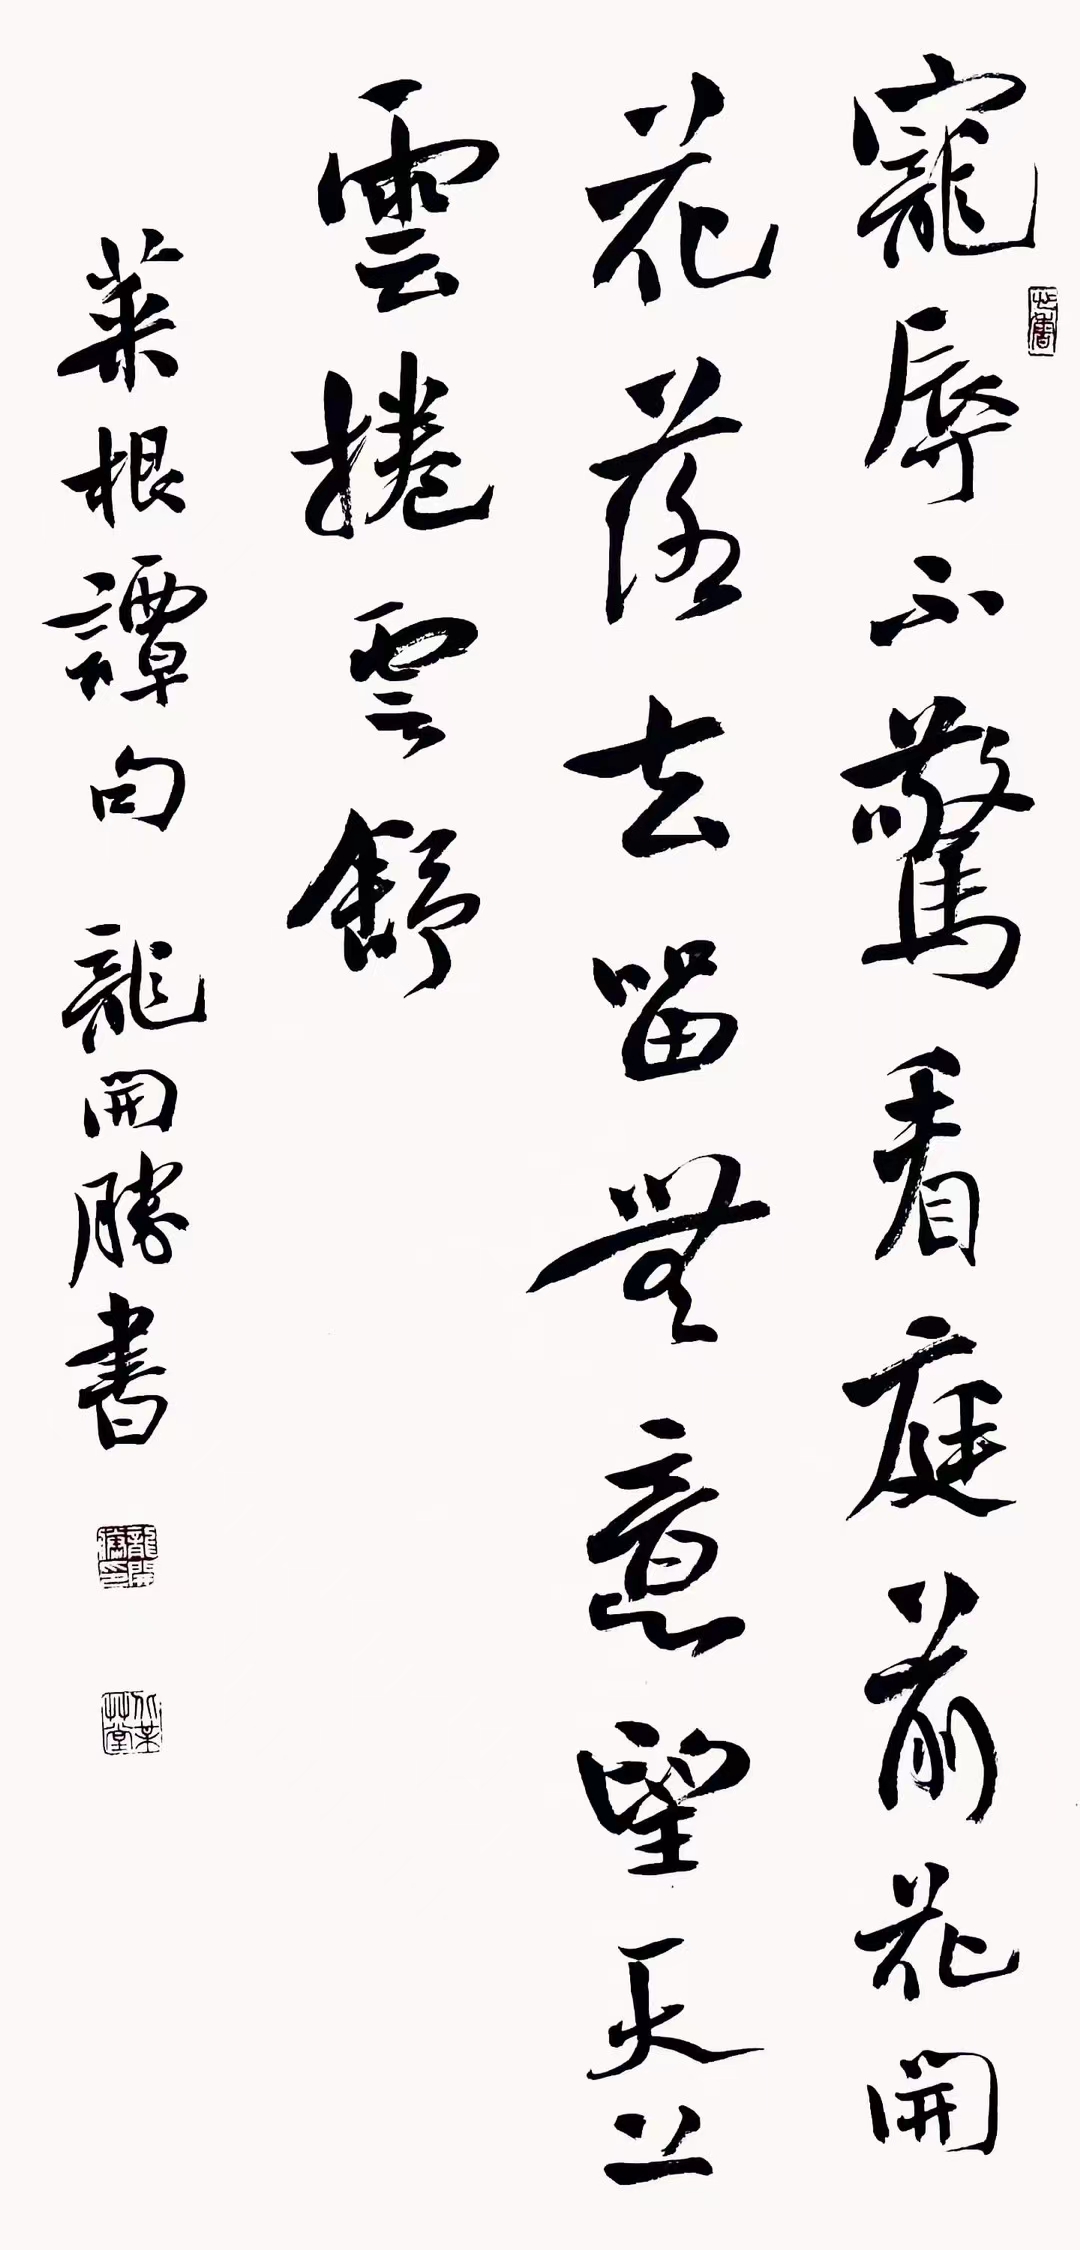 寵辱不驚看庭前花開
花落去留無意望天上
雲捲雲舒
菜根譚句 龍開勝書
龍開勝印